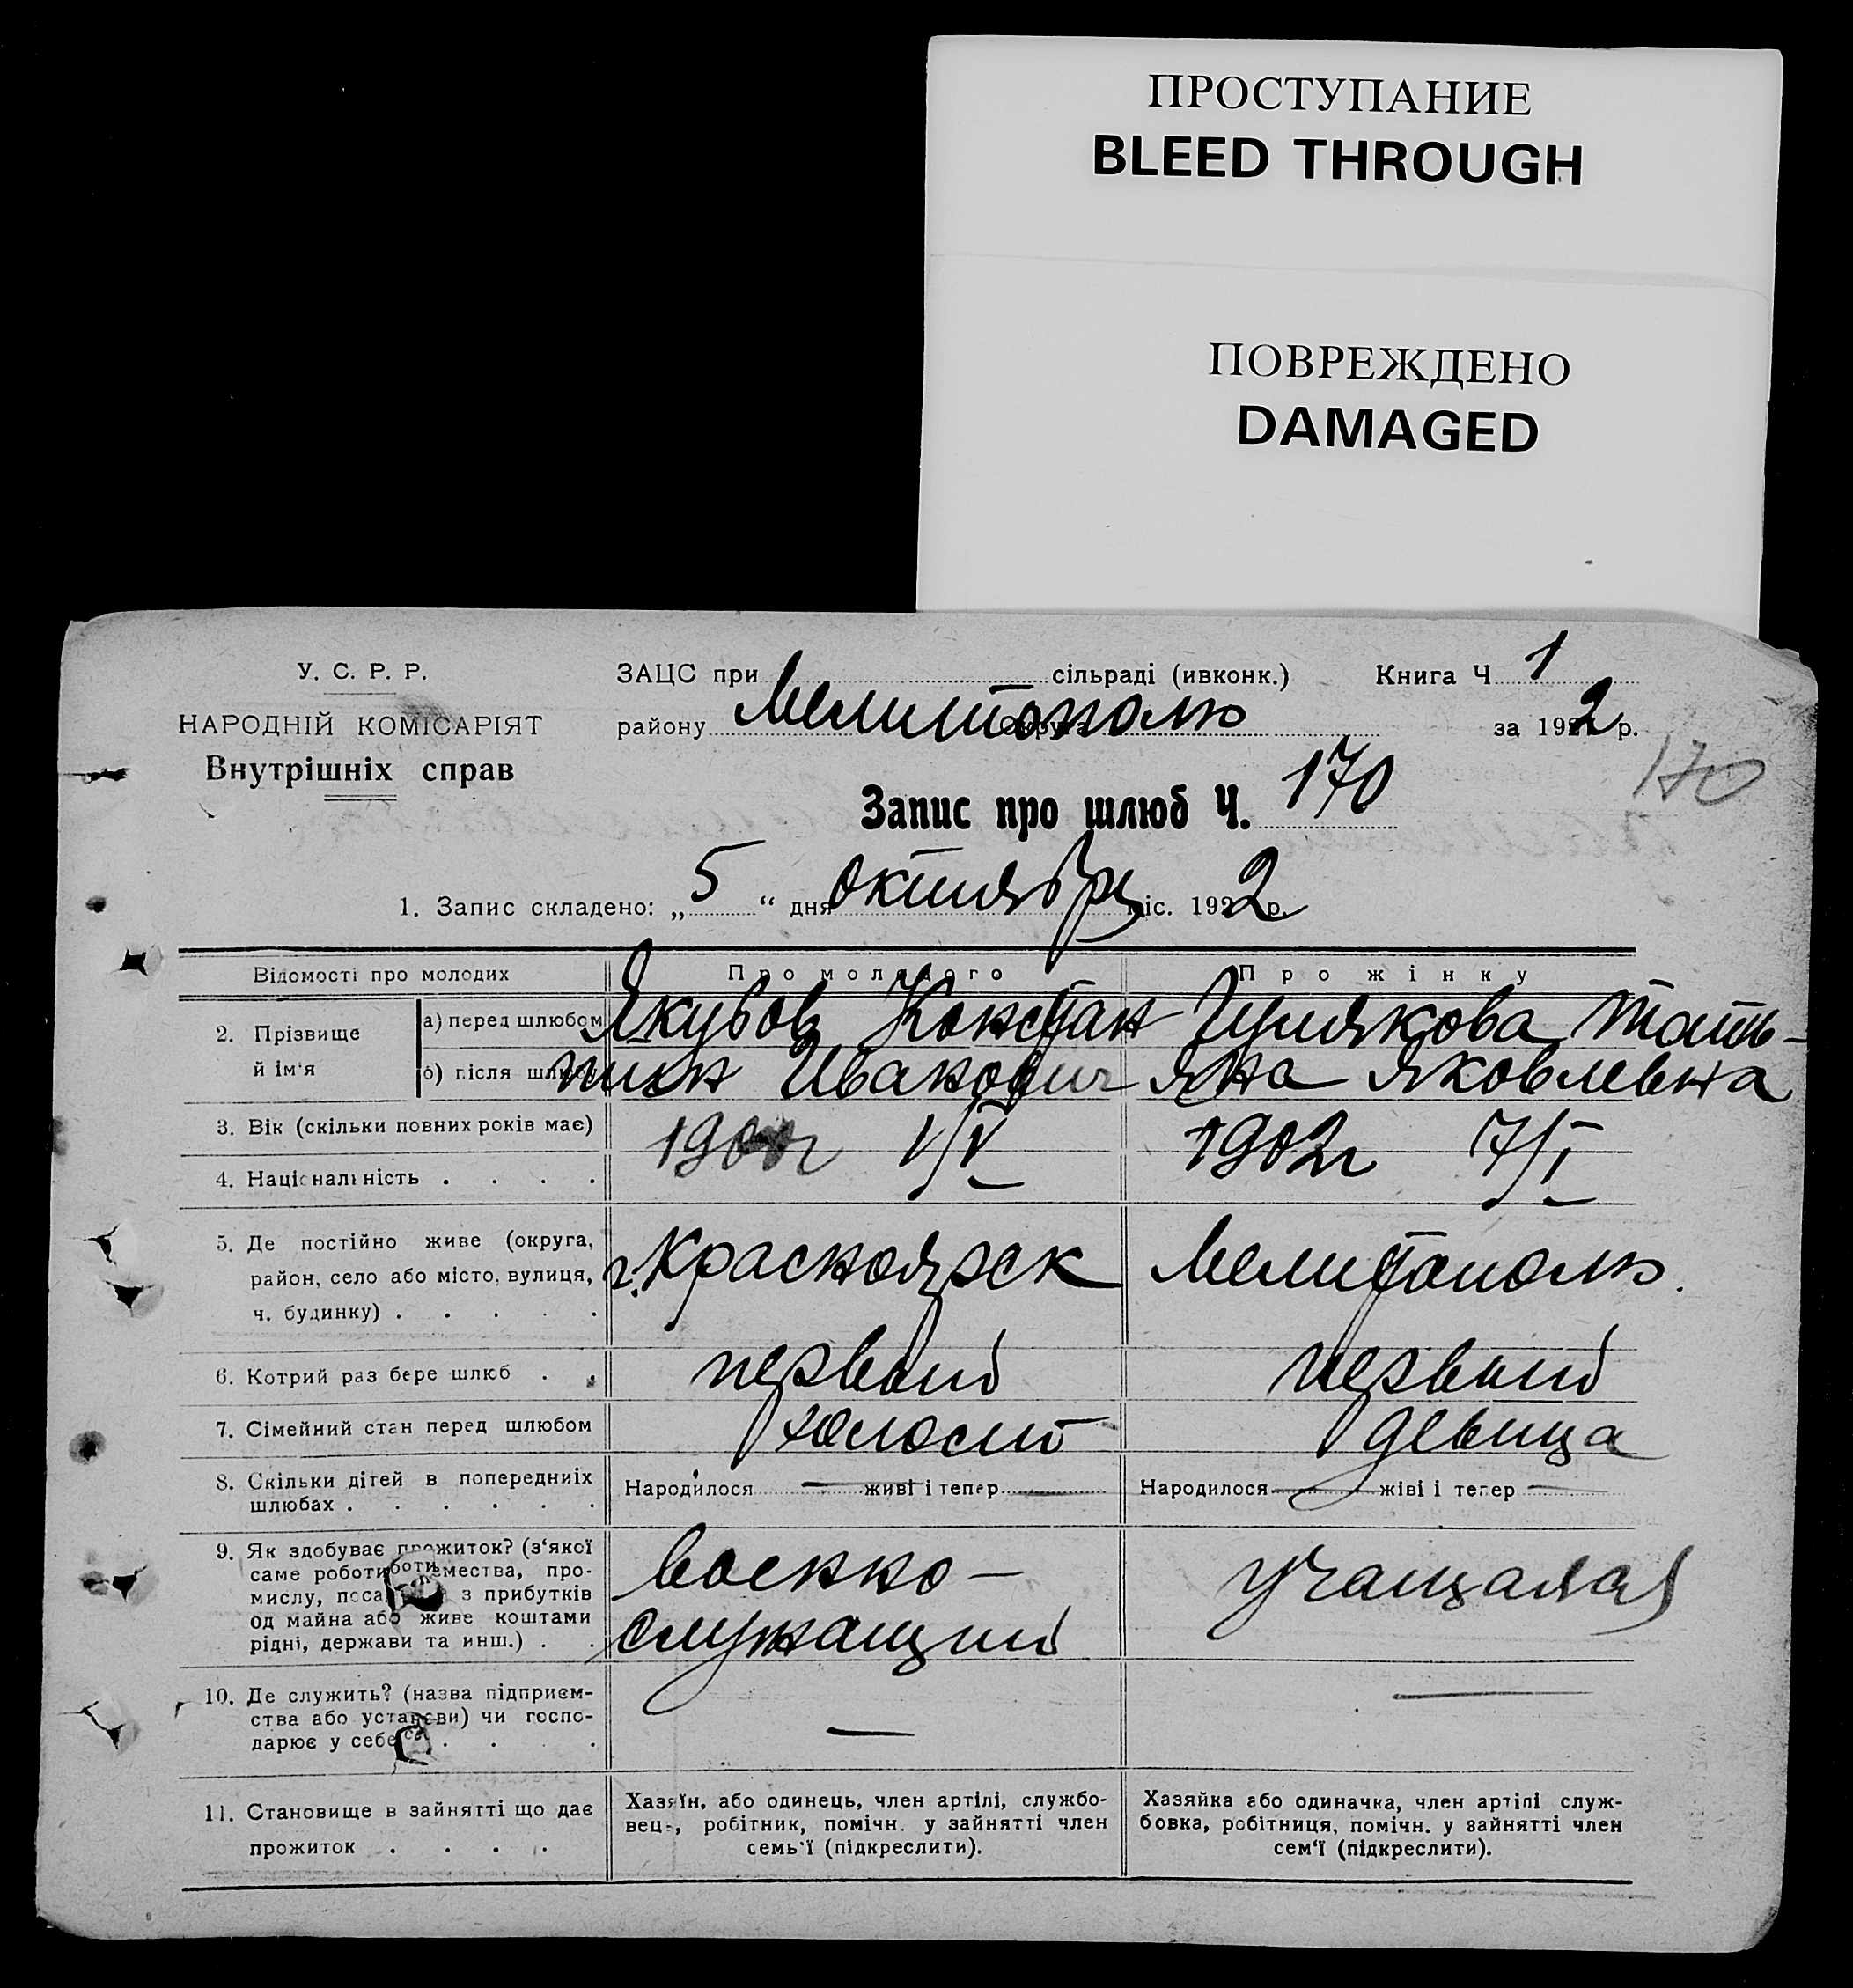 ПРОСТУПАНИЕ
BLEED THROUGH
ПОВРЕЖДЕНО
DAMAGED
У. С. Р. Р.
НАРОДНІЙ КОМІСАРІЯТ
Внутрішніх справ
ЗАЦС при сільраді (ивконк.) Книга Ч 1
району Мелитополь за 1922 р.
Запис про шлюб Ч. 170
170
1. Запис складено: „5“ дня октября міс. 1922 р.
Відомості про молодих Про молодого Про жінку
2. Прізвище й ім‘я
а) перед шлюбом Якубов Констан Гулякова Тать-
б) після шлюбу тин Иванович яна Яковлевна
3. Вік (скільки повних років має) 1/V 1902г 7/I
4. Національність . . . .
5. Де постійно живе (округа,
район, село або місто, вулиця,
ч. будинку) . . . . .
г. Красноярск Мелитополь.
6. Котрий раз бере шлюб . . первый первый
7. Сімейний стан перед шлюбом холост девица
8. Скільки дітей в попередниіх
шлюбах . . . . . .
Народилося — живі і тепер — Народилося — жіві і тепер —
9. Як здобуває прожиток? (з‘якої
саме роботи, ремества, про-
мислу, поса з прибутків
од майна або живе коштами
рідні, держави та инш.) . .
военно-
служащий
учащаяся
10. Де служить? (назва підприєм-
ства або установи) чи госпо-
дарює у себе . . . .
— —
11. Становище в зайнятті що дає
прожиток . . . .
Хазяїн, або одинець, член артілі, службо-
вець, робітник, помічн. у зайнятті член
семь‘ї (підкреслити).
Хазяйка або одиначка, член артілі служ-
бовка, робітниця, помічн. у зайнятті член
сем‘ї (підкреслити).